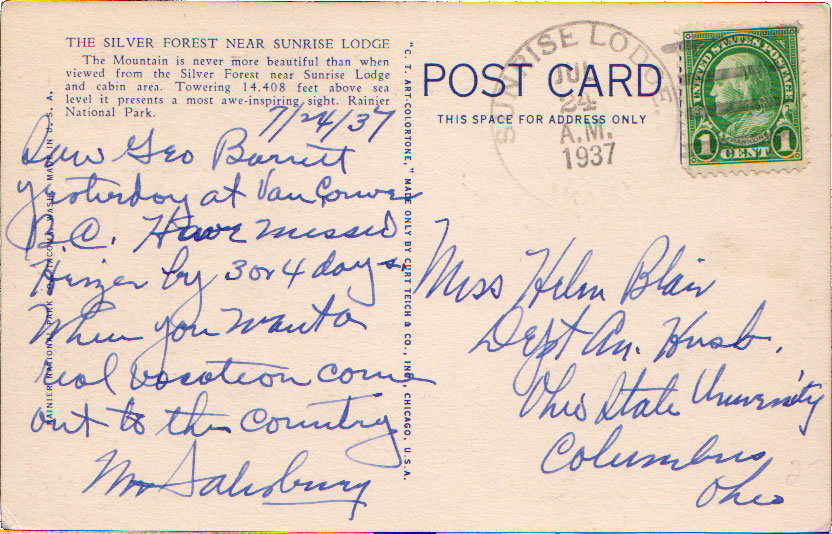 THE SILVER FOREST NEAR SUNRISE LODGE
The Mountain is never more beautiful than when
viewed from the Silver Forest near Sunrise Lodge
and cabin area. Towering 14,408 feet above sea
level it presents a most awe-inspiring sight. Rainier
National Park.
7/24/37
Saw Geo Barrett
yesterday at Van Couver
B.C. Have missed
by 3 or 4 days.
When you want a
real vacation come
out to this Country
Mr Salisbury
RAINIER NATIONAL PARK CO., TACOMA, WASH. MADE IN U. S. A.
"C. T. ART-COLORTONE," MADE ONLY BY CURT TEICH & CO., INC., CHICAGO, U.S.A.
POST CARD
THIS SPACE FOR ADDRESS ONLY
SUNRISE LODGE
JUL
24
A.M.
1937
UNITED STATES POSTAGE
FRANKLIN
1 CENT 1
Miss Helen Blair
Dept An. Husb.
Ohio State University
Columbus
Ohio